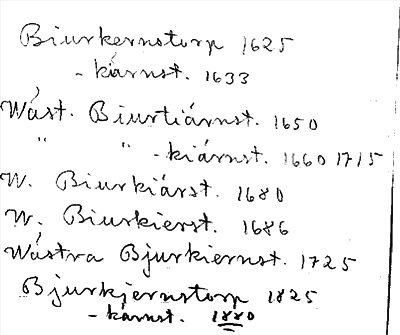 Biurkernstorp 1625
- kärnst. 1633
Wäst. Biurtiärnst. 1650
" " - kiärnst. 1660 1715
W. Biurkiärst. 1680
W. Biurkierst. 1686
Wästra Bjurkiernst. 1725
Bjurkjernstorp 1825
- kärnst. 1880